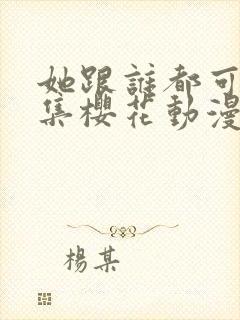 她跟誰都可
集櫻花動漫
楊某